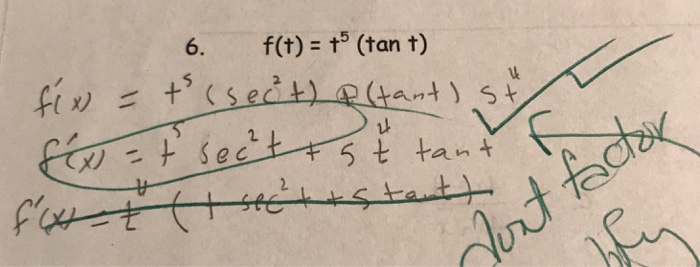 6. f(t) = t⁵ (tan t)
f'(x) = t⁵ (sec² t) + (tan t) 5t⁴
f'(x) = t⁵ sec² t + 5 t⁴ tan t
f'(x) = t⁴ (t sec² t + 5 tan t)
dont factor